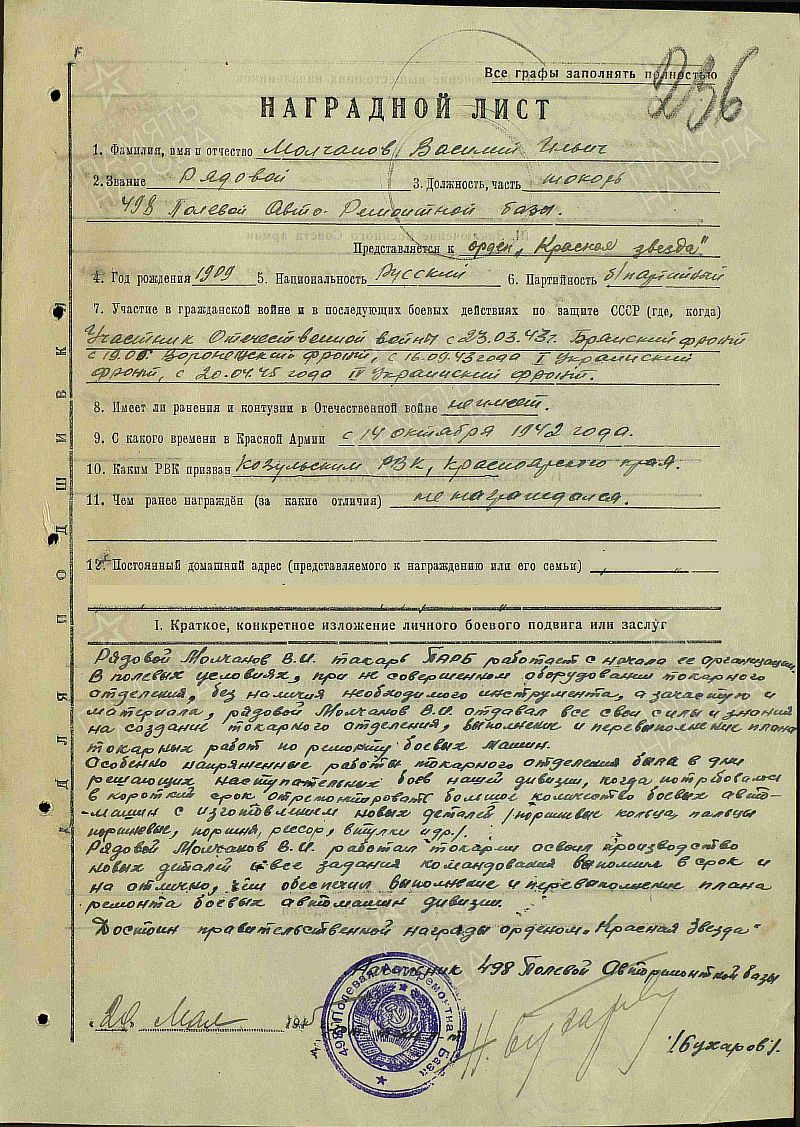 Все графы заполнять полностью
236
НАГРАДНОЙ ЛИСТ
1. Фамилия, имя и отчество Молчанов Василий Ильич
2. Звание Рядовой 3. Должность, часть токарь
498 Полевой Авто-Ремонтной базы.
Представляется к орден „Красная звезда"
4. Год рождения 1909 5. Национальность Русский 6. Партийность б/партийный
7. Участие в гражданской войне и в последующих боевых действиях по защите СССР (где, когда)
Участник Отечественной войны с 23.03.43г. Брянский фронт
с 19.06 Воронежский фронт, с 16.09.43 года I Украинский
фронт, с 20.04.45 года IV Украинский фронт.
8. Имеет ли ранения и контузии в Отечественной войне не имеет.
9. С какого времени в Красной Армии с 14 октября 1942 года.
10. Каким РВК призван Козульским РВК, Красноярского края.
11. Чем ранее награждён (за какие отличия) не награждался.
12. Постоянный домашний адрес (представляемого к награждению или его семьи)
I. Краткое, конкретное изложение личного боевого подвига или заслуг
Рядовой Молчанов В.И. токарь ПАРБ работает с начала ее организации.
В полевых условиях, при не совершенном оборудовании токарного
отделения, без наличия необходимого инструмента, а зачастую и
материала, рядовой Молчанов В.И. отдавал все свои силы и знания
на создание токарного отделения, выполнение и перевыполнение плана
токарных работ по ремонту боевых машин.
Особенно напряженные работы токарного отделения была в дни
решающих наступательных боев нашей дивизии, когда потребовалось
в короткий срок отремонтировать большое количество боевых авто-
-машин с изготовлением новых деталей /поршневые кольца, пальцы
поршневые, поршня, рессор, втулки и др./.
Рядовой Молчанов В.И. работал токарем освоил производство
новых деталей и все задания командования выполнил в срок и
на отлично, чем обеспечил выполнение и перевыполнение плана
ремонта боевых автомашин дивизии.
Достоин правительственной награды орденом „Красная Звезда"
Начальник 498 Полевой Авторемонтной базы
„29" Мая 1945
/Бухаров/.
498 Полевая Авторемонтная База
ДЛЯ ПОДШИВКИ
ПАМЯТЬ НАРОДА